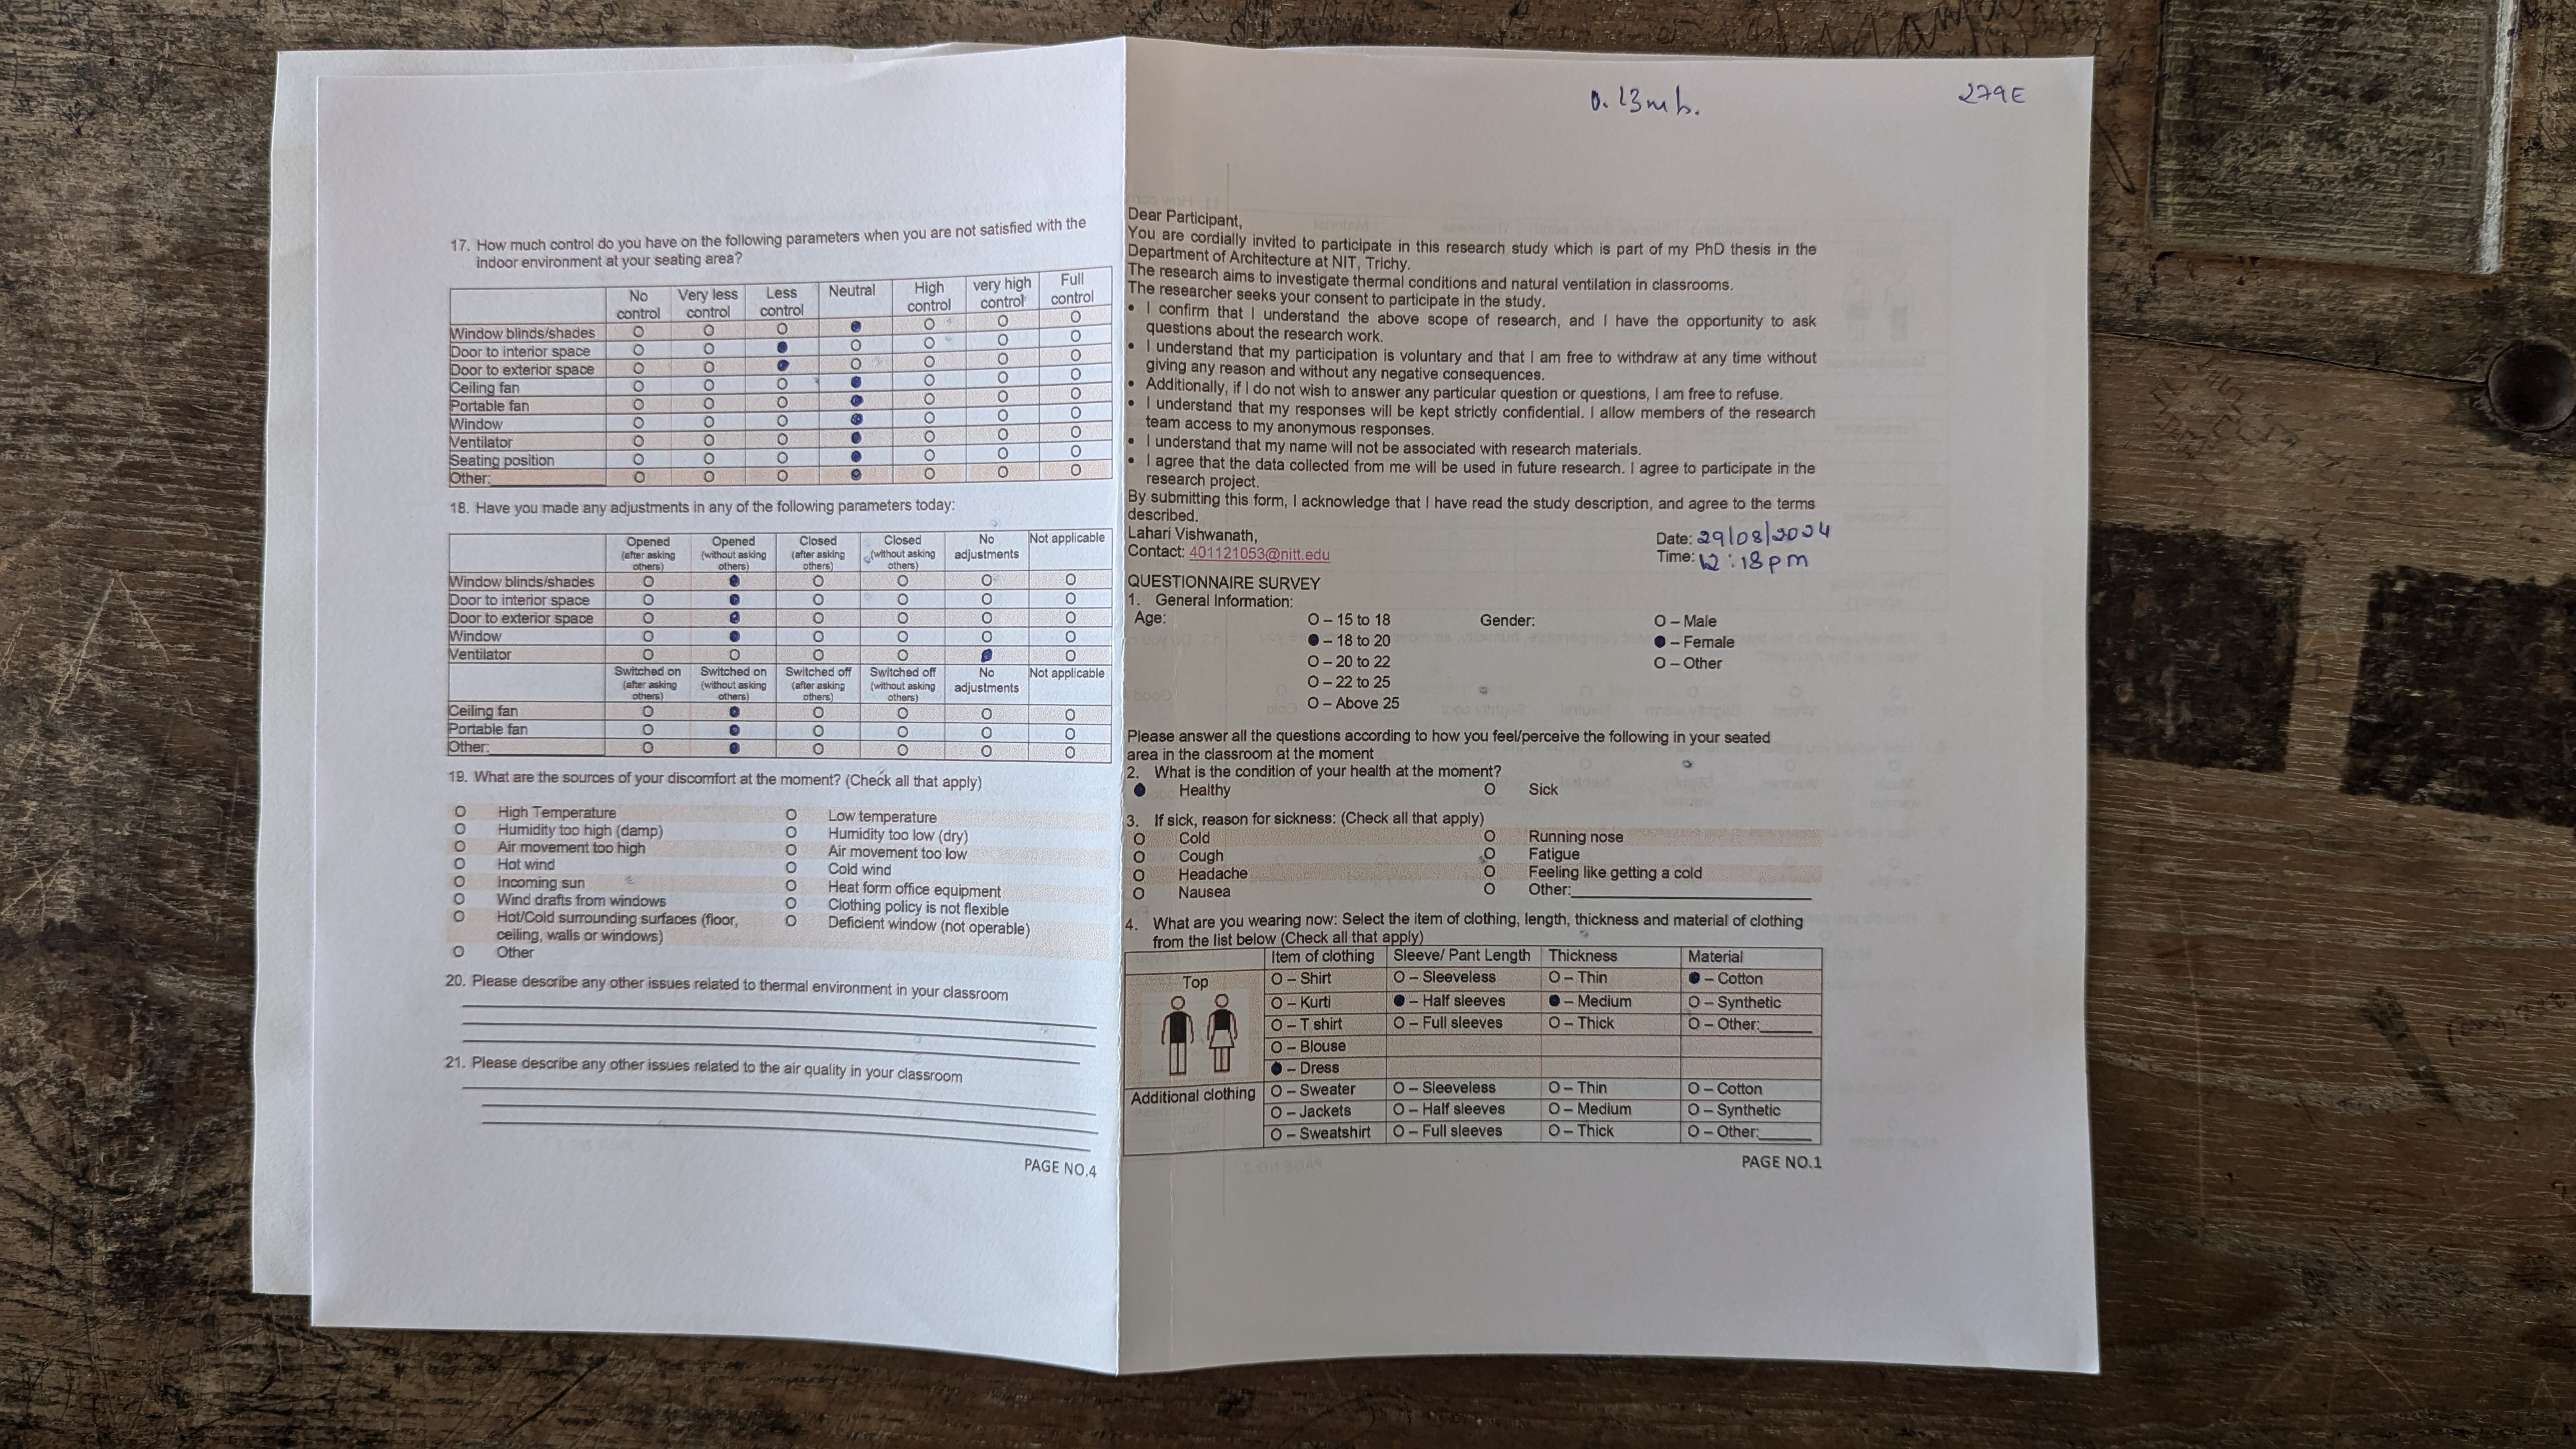 17. How much control do you have on the following parameters when you are not satisfied with the
indoor environment at your seating area?
No control Very less control Less control Neutral High control very high control Full control
Window blinds/shades O O O ● O O O
Door to interior space O O ● O O O O
Door to exterior space O O ● O O O O
Ceiling fan O O O ● O O O
Portable fan O O O ● O O O
Window O O O ● O O O
Ventilator O O O ● O O O
Seating position O O O ● O O O
Other:_____ O O O ● O O O
18. Have you made any adjustments in any of the following parameters today:
Opened (after asking others) Opened (without asking others) Closed (after asking others) Closed (without asking others) No adjustments Not applicable
Window blinds/shades O ● O O O O
Door to interior space O ● O O O O
Door to exterior space O ● O O O O
Window O ● O O O O
Ventilator O O O O ● O
Switched on (after asking others) Switched on (without asking others) Switched off (after asking others) Switched off (without asking others) No adjustments Not applicable
Ceiling fan O ● O O O O
Portable fan O ● O O O O
Other:_____ O ● O O O O
19. What are the sources of your discomfort at the moment? (Check all that apply)
O High Temperature O Low temperature
O Humidity too high (damp) O Humidity too low (dry)
O Air movement too high O Air movement too low
O Hot wind O Cold wind
O Incoming sun O Heat form office equipment
O Wind drafts from windows O Clothing policy is not flexible
O Hot/Cold surrounding surfaces (floor, O Deficient window (not operable)
ceiling, walls or windows)
O Other
20. Please describe any other issues related to thermal environment in your classroom
21. Please describe any other issues related to the air quality in your classroom
PAGE NO.4
0.13mb.
279E
Dear Participant,
You are cordially invited to participate in this research study which is part of my PhD thesis in the
Department of Architecture at NIT, Trichy.
The research aims to investigate thermal conditions and natural ventilation in classrooms.
The researcher seeks your consent to participate in the study.
• I confirm that I understand the above scope of research, and I have the opportunity to ask
questions about the research work.
• I understand that my participation is voluntary and that I am free to withdraw at any time without
giving any reason and without any negative consequences.
• Additionally, if I do not wish to answer any particular question or questions, I am free to refuse.
• I understand that my responses will be kept strictly confidential. I allow members of the research
team access to my anonymous responses.
• I understand that my name will not be associated with research materials.
• I agree that the data collected from me will be used in future research. I agree to participate in the
research project.
By submitting this form, I acknowledge that I have read the study description, and agree to the terms
described.
Lahari Vishwanath, Date: 29/08/2024
Contact: 401121053@nitt.edu Time: 12:18pm
QUESTIONNAIRE SURVEY
1. General Information:
Age: O – 15 to 18 Gender: O – Male
● – 18 to 20 ● – Female
O – 20 to 22 O – Other
O – 22 to 25
O – Above 25
Please answer all the questions according to how you feel/perceive the following in your seated
area in the classroom at the moment
2. What is the condition of your health at the moment?
● Healthy O Sick
3. If sick, reason for sickness: (Check all that apply)
O Cold O Running nose
O Cough O Fatigue
O Headache O Feeling like getting a cold
O Nausea O Other:_____
4. What are you wearing now: Select the item of clothing, length, thickness and material of clothing
from the list below (Check all that apply)
Item of clothing Sleeve/ Pant Length Thickness Material
Top O – Shirt O – Sleeveless O – Thin ● – Cotton
O – Kurti ● – Half sleeves ● – Medium O – Synthetic
O – T shirt O – Full sleeves O – Thick O – Other:_____
O – Blouse
● – Dress
Additional clothing O – Sweater O – Sleeveless O – Thin O – Cotton
O – Jackets O – Half sleeves O – Medium O – Synthetic
O – Sweatshirt O – Full sleeves O – Thick O – Other:_____
PAGE NO.1